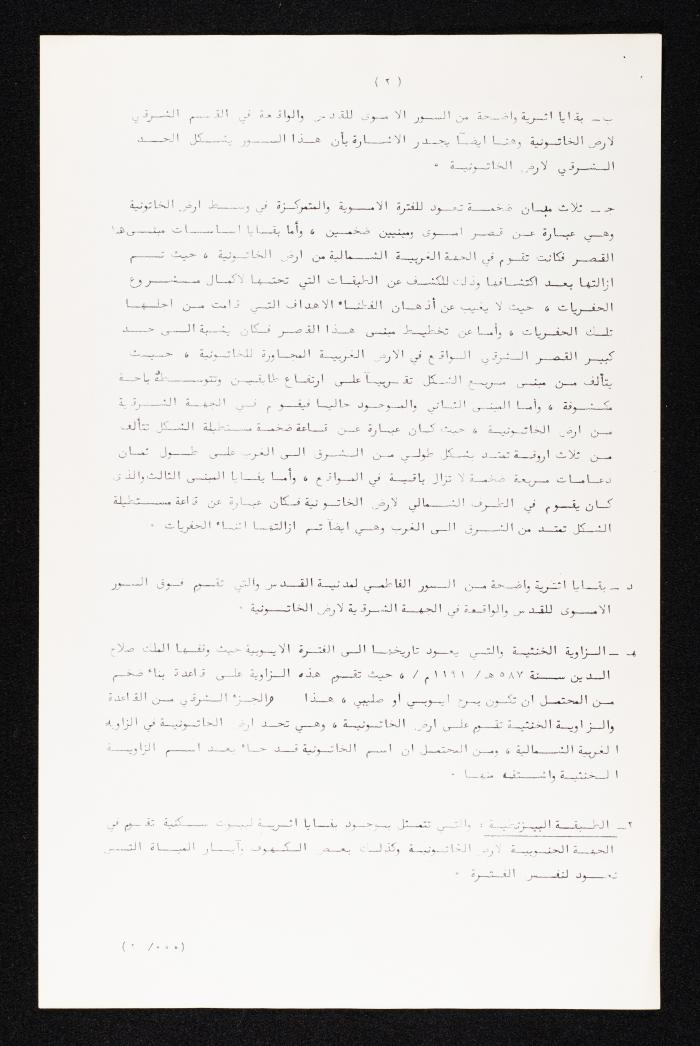 ( ٢ )
ب ـ بقايا اثرية واضحة من السور الاموى للقدس والواقعة في القسم الشرقي
لارض الخاتونية وهنا ايضاً يجدر الاشارة بأن هذا السور يشكل الحد
الشرقي لارض الخاتونية ٠
جـ ـ ثلاث مبان ضخمة تعود للفترة الاموية والمتمركزة في وسط ارض الخاتونية
وهي عبارة عن قصر اموى ومبنيين ضخمين ، وأما بقايا اساسات مبنى هذا
القصر فكانت تقوم في الجهة الغربية الشمالية من ارض الخاتونية ، حيث تم
ازالتها بعد اكتشافها وذلك للكشف عن الطبقات التي تحتها لاكمال مشروع
الحفريات ، حيث لا يغيب عن أذهان الاهداف التي قامت من اجلها
تلك الحفريات ، وأما عن تخطيط مبنى هذا القصر فكان يشبة الى حد
كبير القصر الشرقي الواقع في الارض الغربية المجاورة للخاتونية ، حيث
يتألف من مبنى مربع الشكل تقريباً على ارتفاع طابقين وتتوسطة باحة
مكشوفة ، وأما المبنى الثاني والموجود حاليا فيقوم في الجهة الشرقية
من ارض الخاتونية ، حيث كان عبارة عن قاعة ضخمة مستطيلة الشكل تتألف
من ثلاث اروقة تمتد بشكل طولي من الشرق الى الغرب على طول ثمان
دعامات مربعة ضخمة لا تزال باقية في المواقع ، وأما بقايا المبنى الثالث والذى
كان يقوم في الطرف الشمالي لارض الخاتونية فكان عبارة عن قاعة مستطيلة
الشكل تمتد من الشرق الى الغرب وهي ايضاً تم ازالتها اثناء الحفريات ٠
د ـ بقايا اثرية واضحة من السور الفاطمي لمدنية القدس والتي تقوم فوق السور
الاموى للقدس والواقعة في الجهة الشرقية لارض الخاتونية ٠
هـ ـ الزاوية الخنثية والتي يعود تاريخها الى الفترة الايوبية حيث وقفها الملك صلاح
الدين سنة ٥٨٧ هـ / ١١٩١ م / ، حيث تقوم هذه الزاوية على قاعدة بناء ضخم
من المحتمل ان تكون برج ايوبي أو صليبي ، هذا والجزء الشرقي من القاعدة
والزاوية الخنثية تقوم على ارض الخاتونية ، وهي تحد ارض الخاتونية في الزاوية
الغربية الشمالية ، ومن المحتمل ان اسم الخاتونية قد جاء بعد اسم الزاوية
الخنثية واشتقه منها ٠
٢ـ الطبقة البيزنطية : والتي تتمثل بوجود بقايا اثرية لبيوت سكنية تقوم في
الجهة الجنوبية لارض الخاتونية وكذلك بعض الكهوف وآبار المياة التي
تعود لنفس الفترة ٠
( ٠ /٠٠٠ )